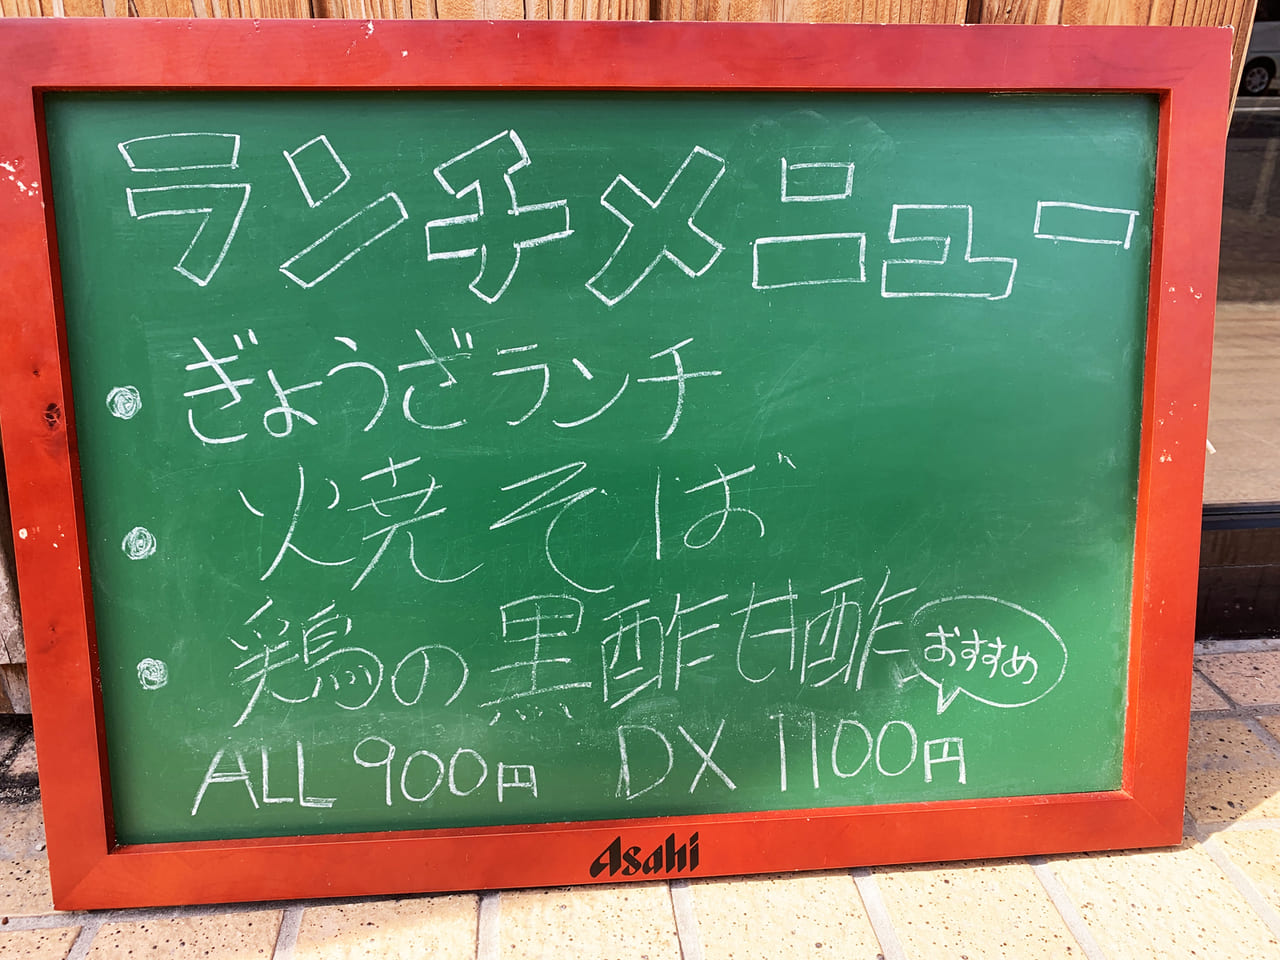 ランチメニュー
ぎょうざランチ
焼そば
鶏の黒酢甘酢 おすすめ
ALL 900円 DX 1100円
Asahi